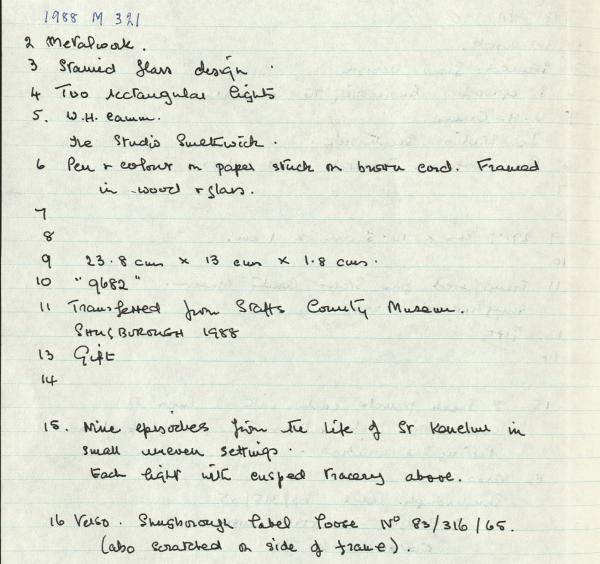 1988 M 321
2 Metalwork.
3 Stained glass design.
4 Two rectangular lights
5. W.H. Camm.
the Studio Smethwick.
6 Pen & colour on paper stuck on brown card. Framed
in wood & glass.
7
8
9 23.8 cms x 13 cms x 1.8 cms.
10 "9682"
11 Transferred from Staffs County Museum.
SHUGBOROUGH 1988
13 Gift
14
15. Nine episodes from the life of St Kenelm in
small uneven settings.
Each light with cusped tracery above.
16 Verso. Shugborough label loose No 83/316/65.
(also scratched on side of frame).